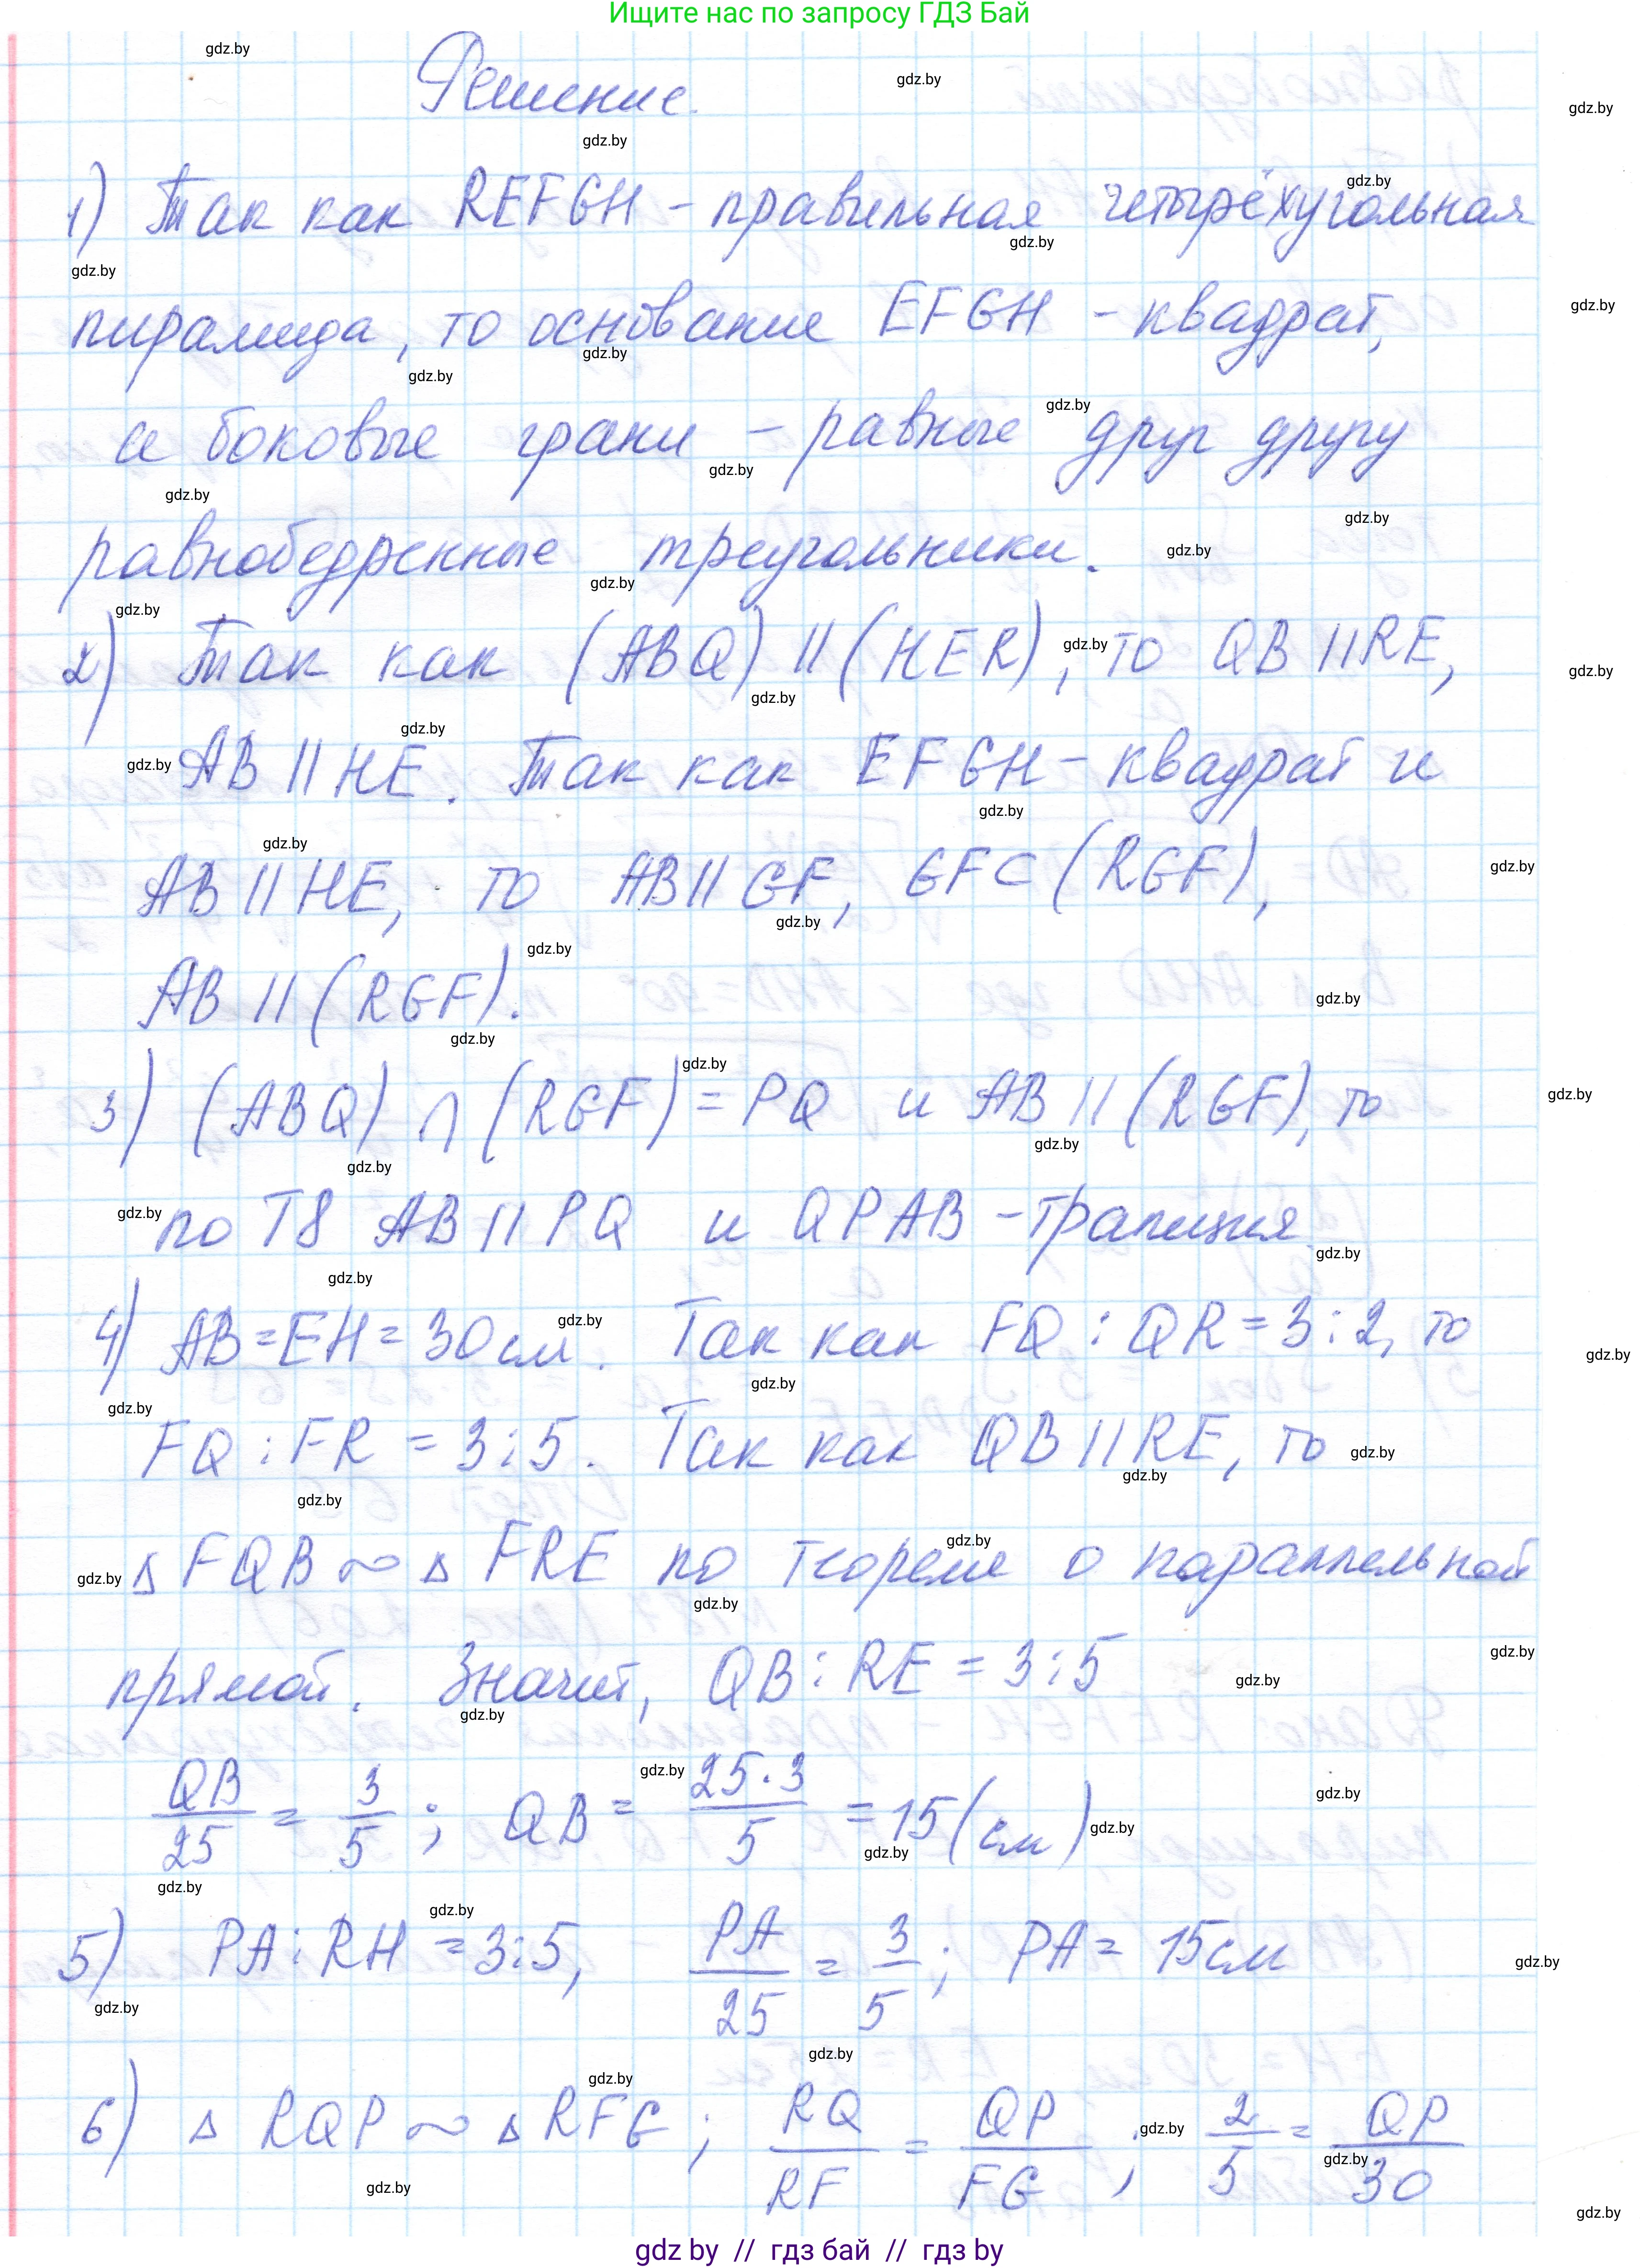 Ищите нас по запросу ГДЗ Бай
Решение.
1) Так как REFGH - правильная четырёхугольная
пирамида, то основание EFGH - квадрат,
а боковые грани - равные друг другу
равнобедренные треугольники.
2) Так как (ABQ) || (HER), то QB || RE,
AB || HE. Так как EFGH - квадрат и
AB || HE, то AB || GF, GF⊂(RGF),
AB || (RGF).
3) (ABQ) ∩ (RGF) = PQ и AB || (RGF), то
по Т8 AB || PQ и QPAB - трапеция
4) AB = EH = 30 см. Так как FQ : QR = 3 : 2, то
FQ : FR = 3 : 5. Так как QB || RE, то
Δ FQB ∾ Δ FRE по теореме о параллельной
прямой. Значит, QB : RE = 3 : 5
QB/25 = 3/5 ; QB = 25·3/5 = 15 (см)
5) PA : RH = 3 : 5, PA/25 = 3/5 ; PA = 15 см
6) Δ RQP ∾ Δ RFG ; RQ/RF = QP/FG ; 2/5 = QP/30
gdz by // гдз бай // гдз by